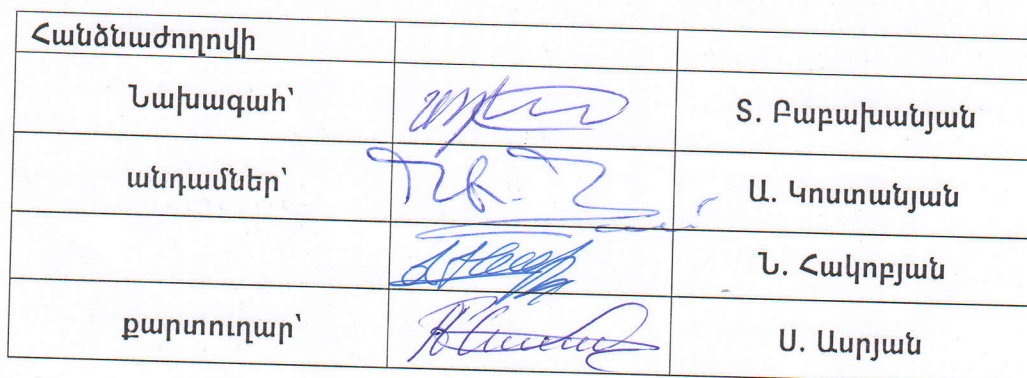 Հանձնաժողովի
Նախագահ՝ Տ. Բաբախանյան
անդամներ՝ Ա. Կոստանյան
Ն. Հակոբյան
քարտուղար՝ Ս. Ասրյան